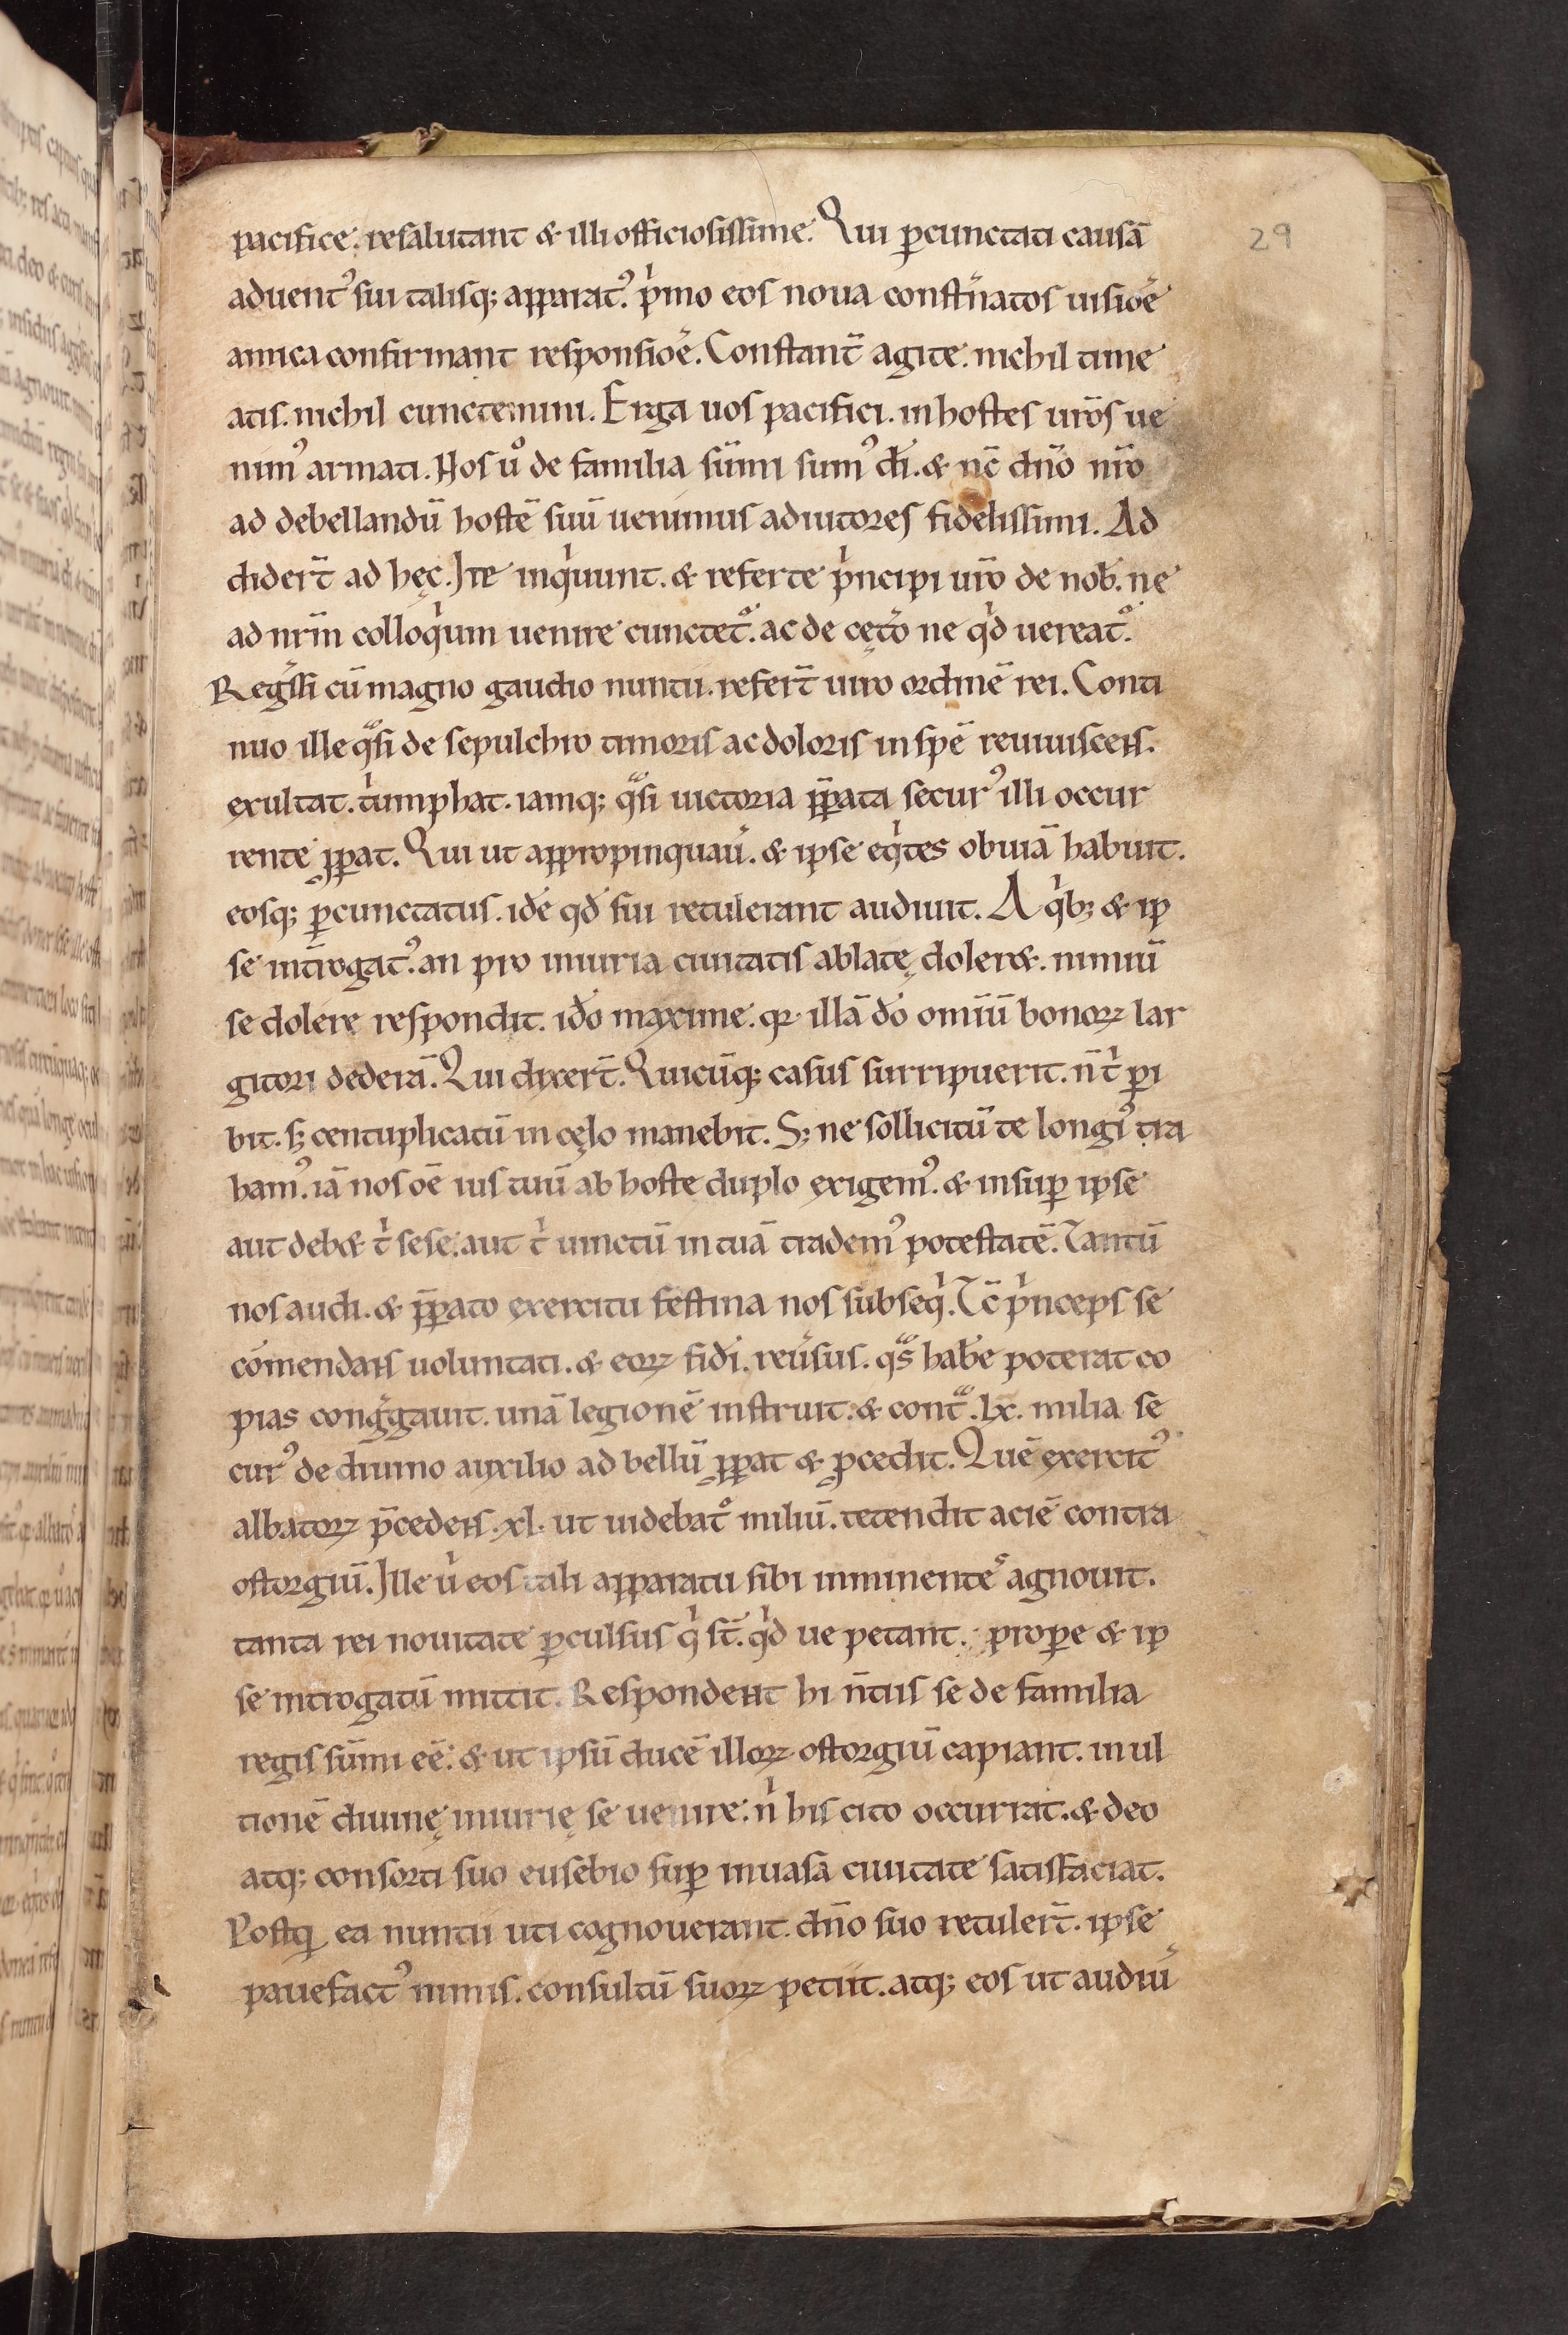 pacifice. resalutant & illi officiosissime. Qui ꝑcunctati causā 29
aduentꝰ sui talisq; apparatꝰ. pͥmo eos noua const̉natos uisiōe
amica confirmant responsiōe. Constant̄ agite. nichil time
atis. nichil cunctemini. Erga uos pacifici. in hostes ur̄os ue
nimꝰ armati. Nos uͦ de familia sūmi sumꝰ dī. & nc̄ dn̄o nr̄o
ad debellandū hostē suū uenimus adiutores fidelissimi. Ad
didert̄ ad hęc. Ite inqͥunt. & referte pͥncipi ur̄o de nob̄. ne
ad nr̄m colloqͥum uenire cunctet᷑. ac de cęt̉o ne qͥd uereat᷑.
Reg̉ssi cū magno gaudio nuntii. refert̄ uiro ordinē rei. Conti
nuo ille qͣsi de sepulchro timoris ac doloris in spē reuiuiscens.
exultat. tͥumphat. iamq; qͣsi uictoria p̄ꝑata securꝰ illi occur
rente ꝓꝑat. Qui ut appropinquaủ. & ipse eqͥtes obuiā habuit.
eosq; ꝑcunctatus. idē qd̄ sui retulerant audiuit. A qͥb; & ip
se int̄rogatꝰ. an pro iniuria ciuitatis ablatę doler&. nimiū
se dolere respondit. id̄o maxime. qꝛ illā dō omīū bonoꝝ lar
gitori dederā. Qui dixert̄. Quicūq; casus surripuerit. n̄ tͥ ꝑi
bit. s; centuplicatū in cęlo manebit. S; ne sollicitū te longiꝰ tra
hamꝰ. iā nos oē ius tuū ab hoste duplo exigemꝰ. & insuꝑ ipse
aut deb& tͥ sese. aut tͥ uinctū in tuā trademꝰ potestatē. Tantū
nos audi. & p̄ꝑato exercitu festina nos subseqͥ. Tc̄ pͥnceps se
cōmendans uoluntati. & eoꝝ fidi. reủsus. qͣs hab̄e poterat co
pias cong̉gauit. unā legionē instruit. & contͣ .lx. milia se
curꝰ de diuino auxilio ad bellū ꝓꝑat & ꝓcedit. Quē exercitꝰ
albatoꝝ p̄cedens .xl. ut uidebat᷑ miliū. tetendit aciē contra
ostorgiū. Ille uͥ eos tali apparatu sibi imminente᷑ agnouit.
tanta rei nouitate ꝑculsus qͥ st̄. qͥd ue petant. proꝑe & ip
se introgatū mittit. Respondent hi n̄tiis se de familia
regis sūmi eē. & ut ipsū ducē illoꝝ ostorgiū capiant. in ul
tionē diuinę iniurię se uenire. nͥ his cito occurrat. & deo
atq; consorti suo eusebio suꝑ inuasā ciuitate satisfaciat.
Postq̨ ea nuntii uti cognouerant. dn̄o suo retulert̄. ipse
pauefactꝰ nimis. consultū suoꝝ petiit. atq; eos ut audiủ